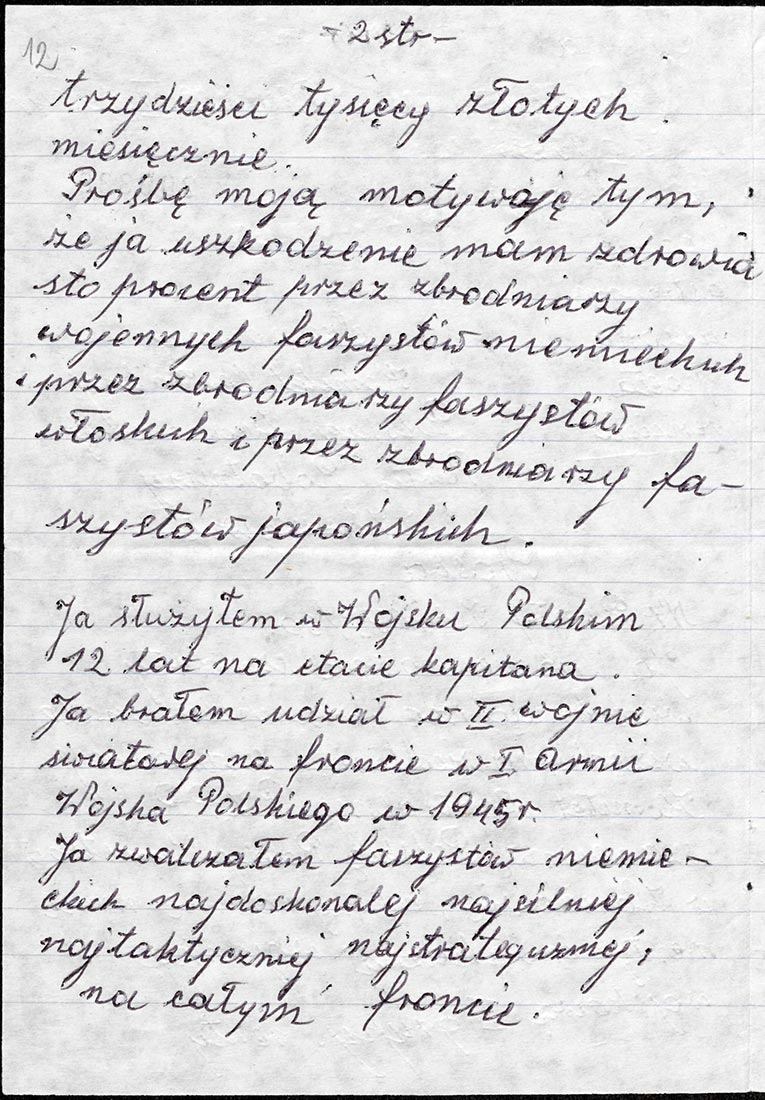 12
- 2 str -
trzydzieści tysięcy złotych.
miesięcznie.
Prośbę moją motywuję tym,
że ja uszkodzenie mam zdrowia
sto procent przez zbrodniarzy
wojennych faszystów niemieckich
i przez zbrodniarzy faszystów
włoskich i przez zbrodniarzy fa-
szystów japońskich.
Ja służyłem w Wojsku Polskim
12 lat na etacie kapitana.
Ja brałem udział w II. wojnie
światowej na froncie w I Armii
Wojska Polskiego w 1945r.
Ja zwalczałem faszystów niemie-
ckich najdoskonalej najsilniej
najtaktyczniej najstrategiczniej,
na całym froncie.